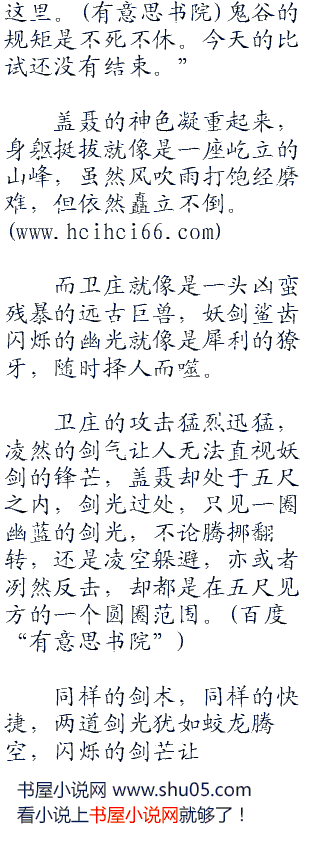 这里。(有意思书院)鬼谷的
规矩是不死不休。今天的比
试还没有结束。”
盖聂的神色凝重起来，
身躯挺拔就像是一座屹立的
山峰，虽然风吹雨打饱经磨
难，但依然矗立不倒。
(www.hcihci66.com)
而卫庄就像是一头凶蛮
残暴的远古巨兽，妖剑鲨齿
闪烁的幽光就像是犀利的獠
牙，随时择人而噬。
卫庄的攻击猛烈迅猛，
凌然的剑气让人无法直视妖
剑的锋芒，盖聂却处于五尺
之内，剑光过处，只见一圈
幽蓝的剑光，不论腾挪翻
转，还是凌空躲避，亦或者
冽然反击，却都是在五尺见
方的一个圆圈范围。(百度
“有意思书院”)
同样的剑术，同样的快
捷，两道剑光犹如蛟龙腾
空，闪烁的剑芒让
书屋小说网 www.shu05.com
看小说上书屋小说网就够了！